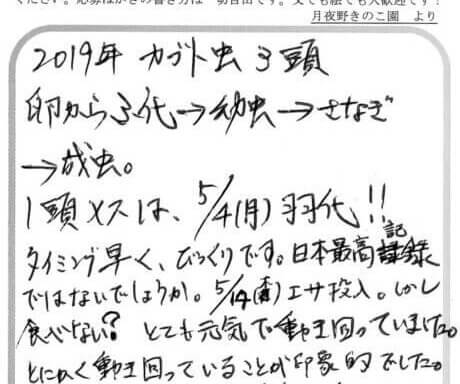 ください。応募はがきの書き方は一切自由です。文でも絵でも大歓迎です!
月夜野きのこ園 より
2019年 カブト虫 3頭
卵からふ化→幼虫→さなぎ
→成虫。
1頭メスは、5/4(月)羽化!!
タイミング早く、びっくりです。日本最高記録
ではないでしょうか。5/14 エサ投入。しかし
食べない? とても元気で動き回っていました。
とにかく動き回っていることが印象的でした。